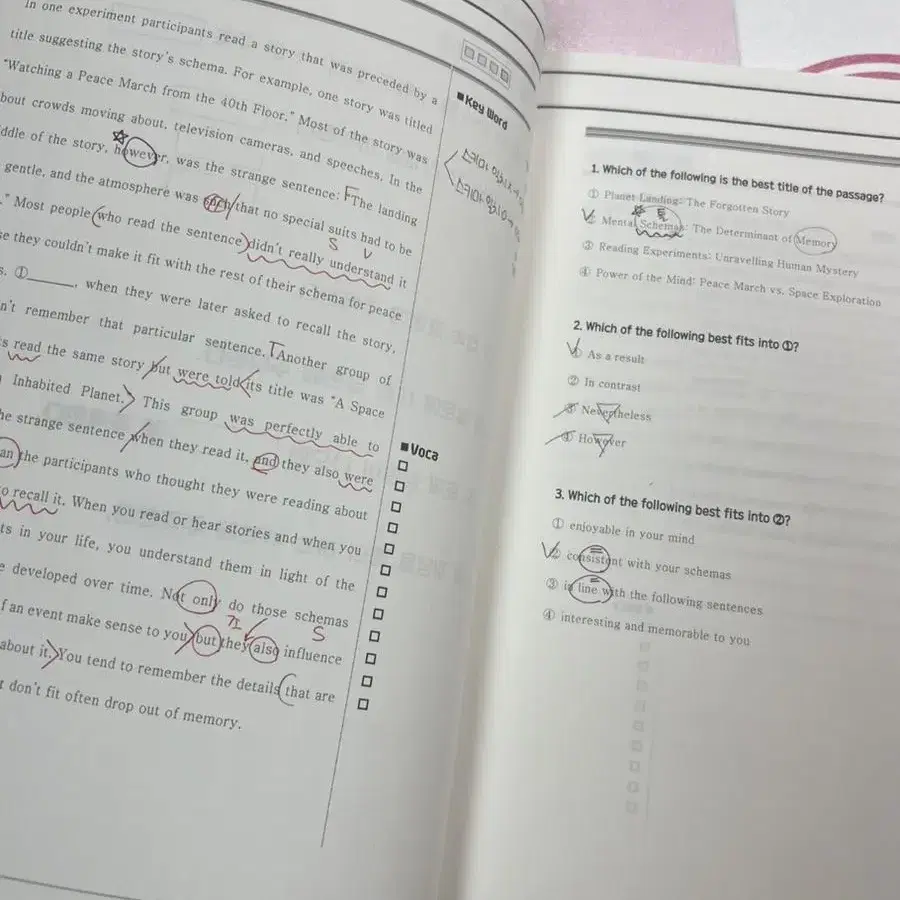 In one experiment participants read a story that was preceded by a
title suggesting the story's schema. For example, one story was titled
"Watching a Peace March from the 40th Floor." Most of the story was
bout crowds moving about, television cameras, and speeches. In the
ddle of the story, however, was the strange sentence: "The landing
gentle, and the atmosphere was such that no special suits had to be
." Most people who read the sentence didn't really understand it
se they couldn't make it fit with the rest of their schema for peace
s. ①______, when they were later asked to recall the story,
n't remember that particular sentence. Another group of
s read the same story but were told its title was "A Space
Inhabited Planet." This group was perfectly able to
he strange sentence when they read it, and they also were
an the participants who thought they were reading about
o recall it. When you read or hear stories and when you
ts in your life, you understand them in light of the
e developed over time. Not only do those schemas
f an event make sense to you, but they also influence
about it. You tend to remember the details that are
t don't fit often drop out of memory.
■Key Word
■Voca
1. Which of the following is the best title of the passage?
① Planet Landing: The Forgotten Story
② Mental Schemas: The Determinant of Memory
③ Reading Experiments: Unravelling Human Mystery
④ Power of the Mind: Peace March vs. Space Exploration
2. Which of the following best fits into ①?
① As a result
② In contrast
③ Nevertheless
④ However
3. Which of the following best fits into ②?
① enjoyable in your mind
② consistent with your schemas
③ in line with the following sentences
④ interesting and memorable to you